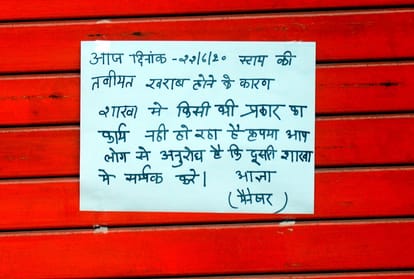 आज दिनांक - २२/6/२० स्टाफ की
तबीयत खराब होने के कारण
शाखा मे किसी भी प्रकार का
कार्य नही हो रहा है कृपया आप
लोग से अनुरोध है कि दूसरी शाखा
मे सर्म्पक करे। आज्ञा
(मैनेजर)